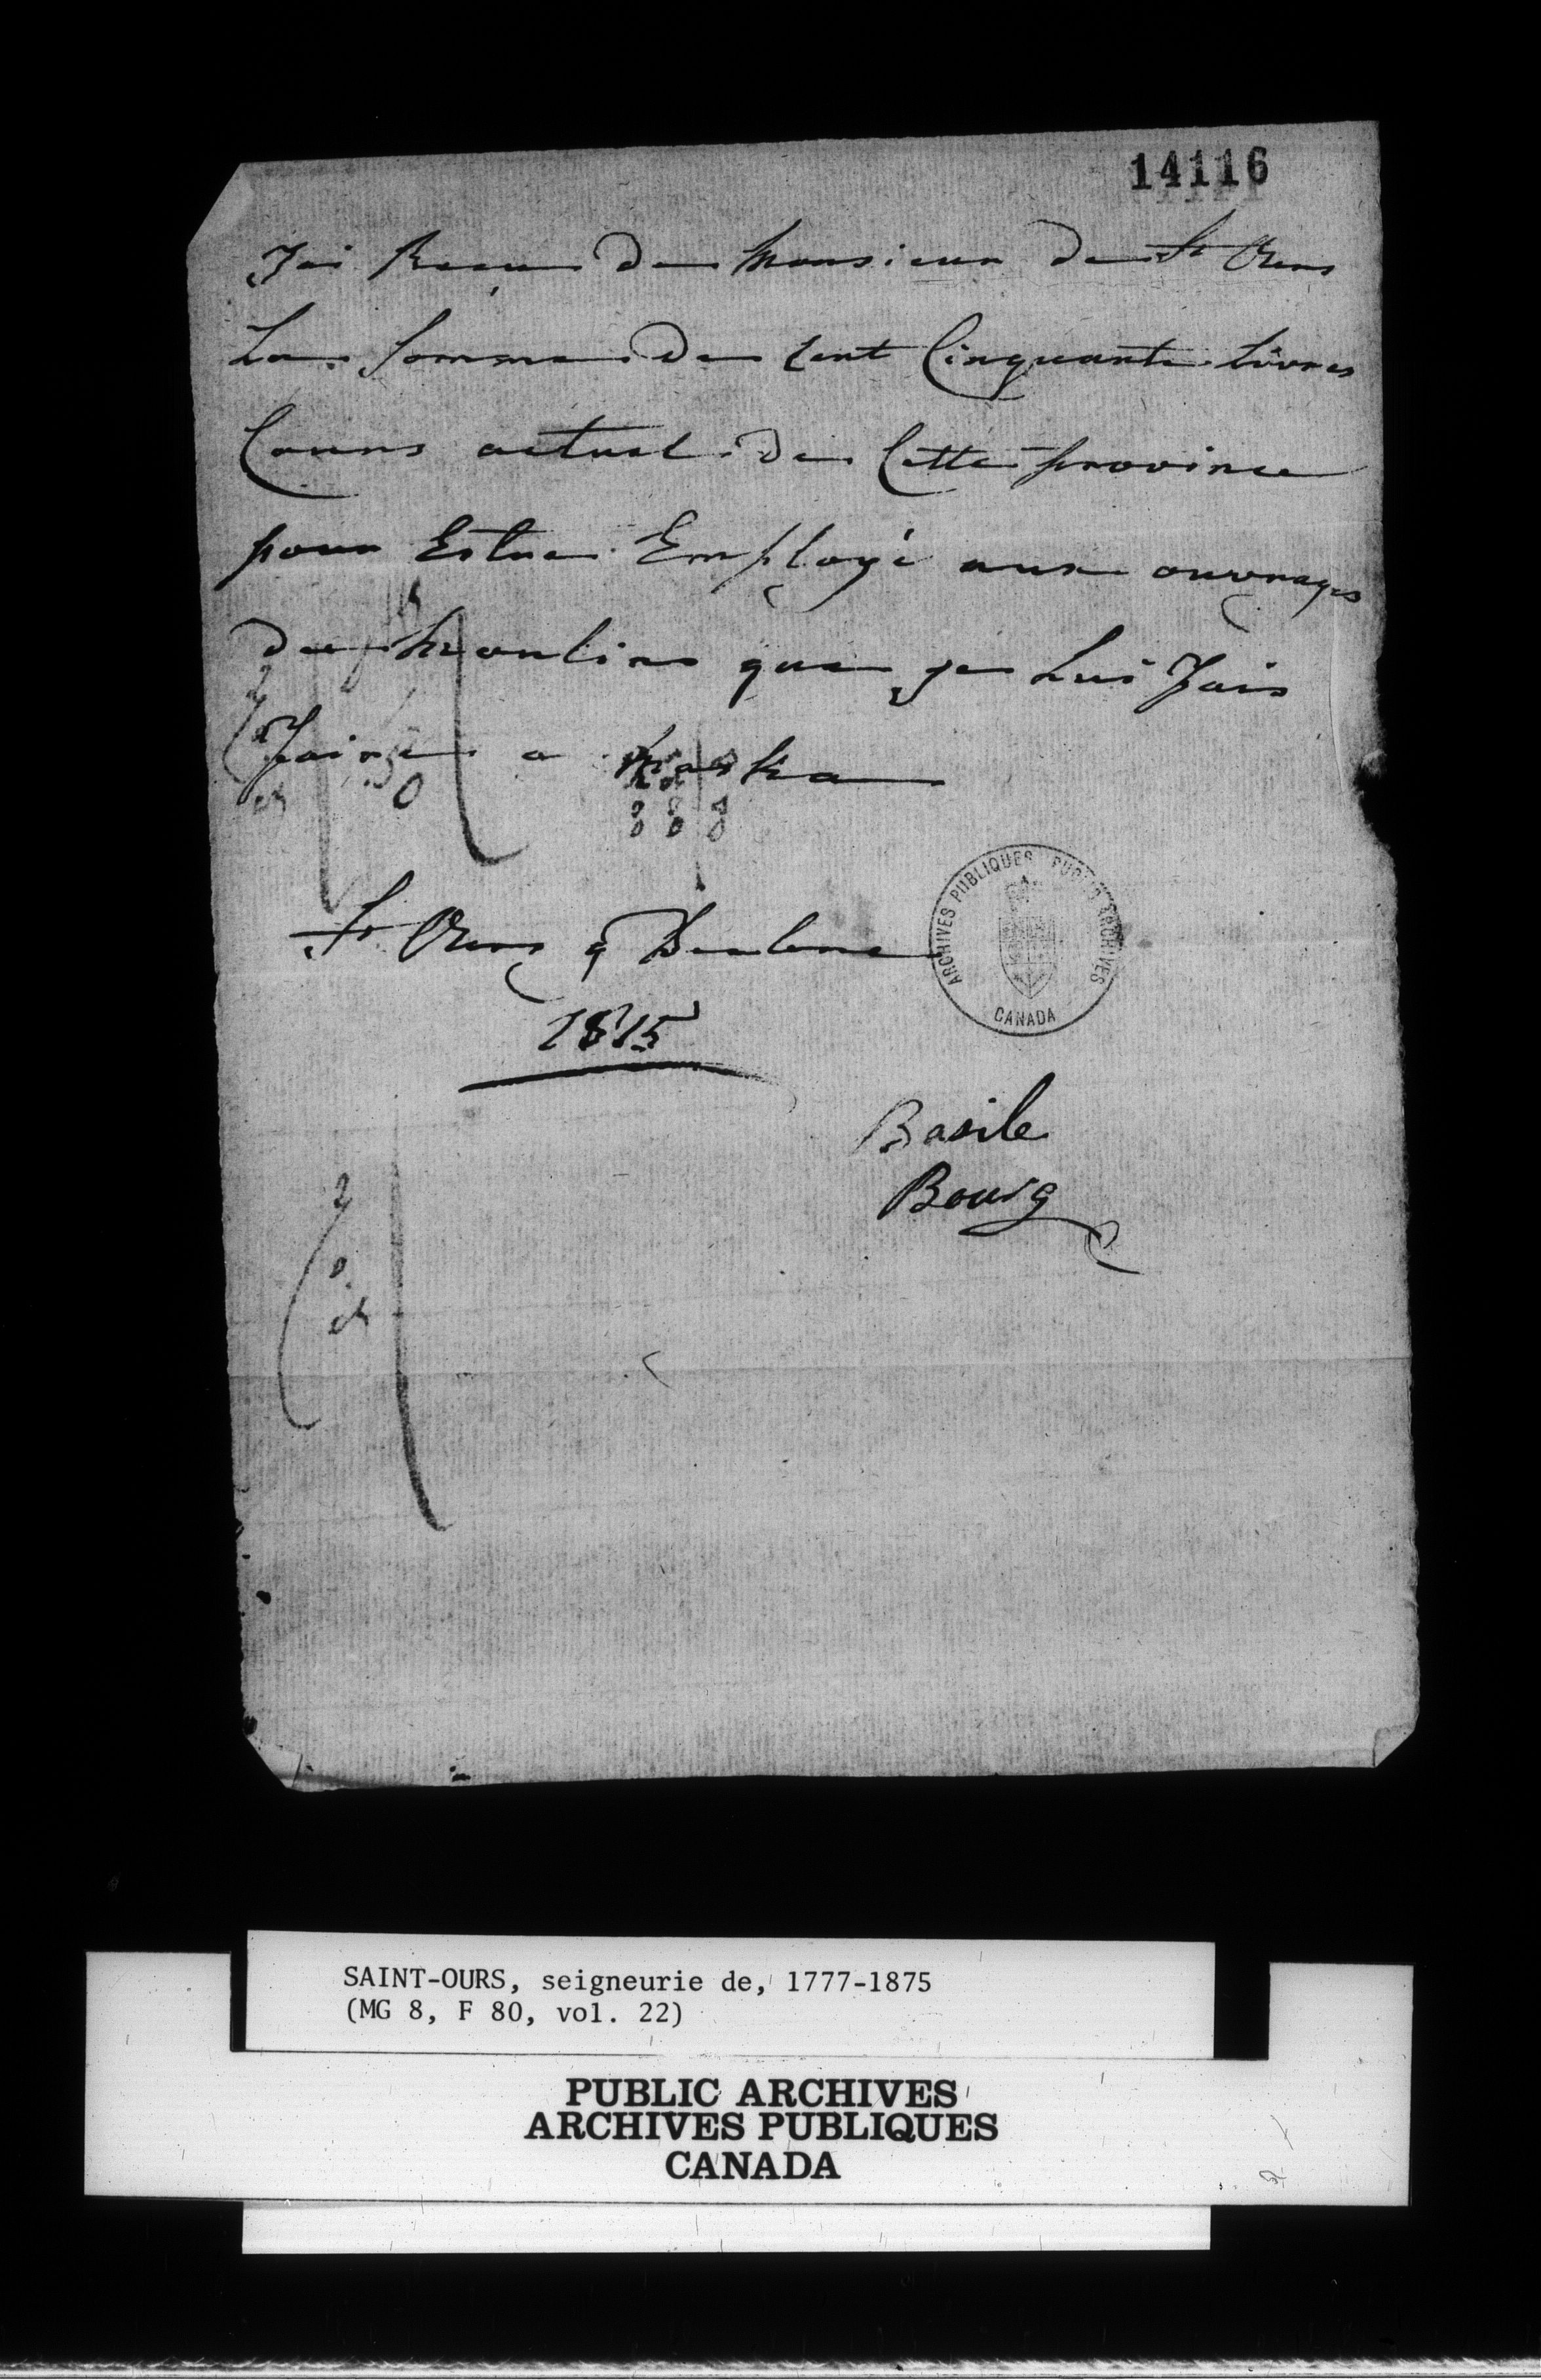 14116
Jai Reçu de Monsieur de St Ours
La Somme de Cent Cinquante livres
Cours actuel de Cette province
pour Estre Employé aux ouvrages
du Moulins que je Lui fais
faire a Maska
St Ours 9 Decbme
1815
Basile
Bourg
ARCHIVES PUBLIQUES PUBLIC ARCHIVES
CANADA
SAINT-OURS, seigneurie de, 1777-1875
(MG 8, F 80, vol. 22)
PUBLIC ARCHIVES
ARCHIVES PUBLIQUES
CANADA